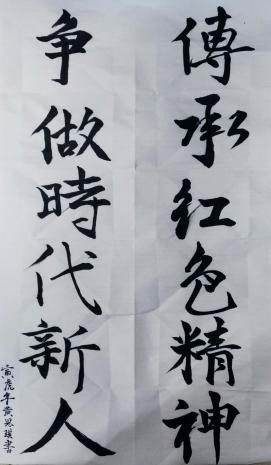 傳承红色精神
争做時代新人
寅虎年黄思琪書